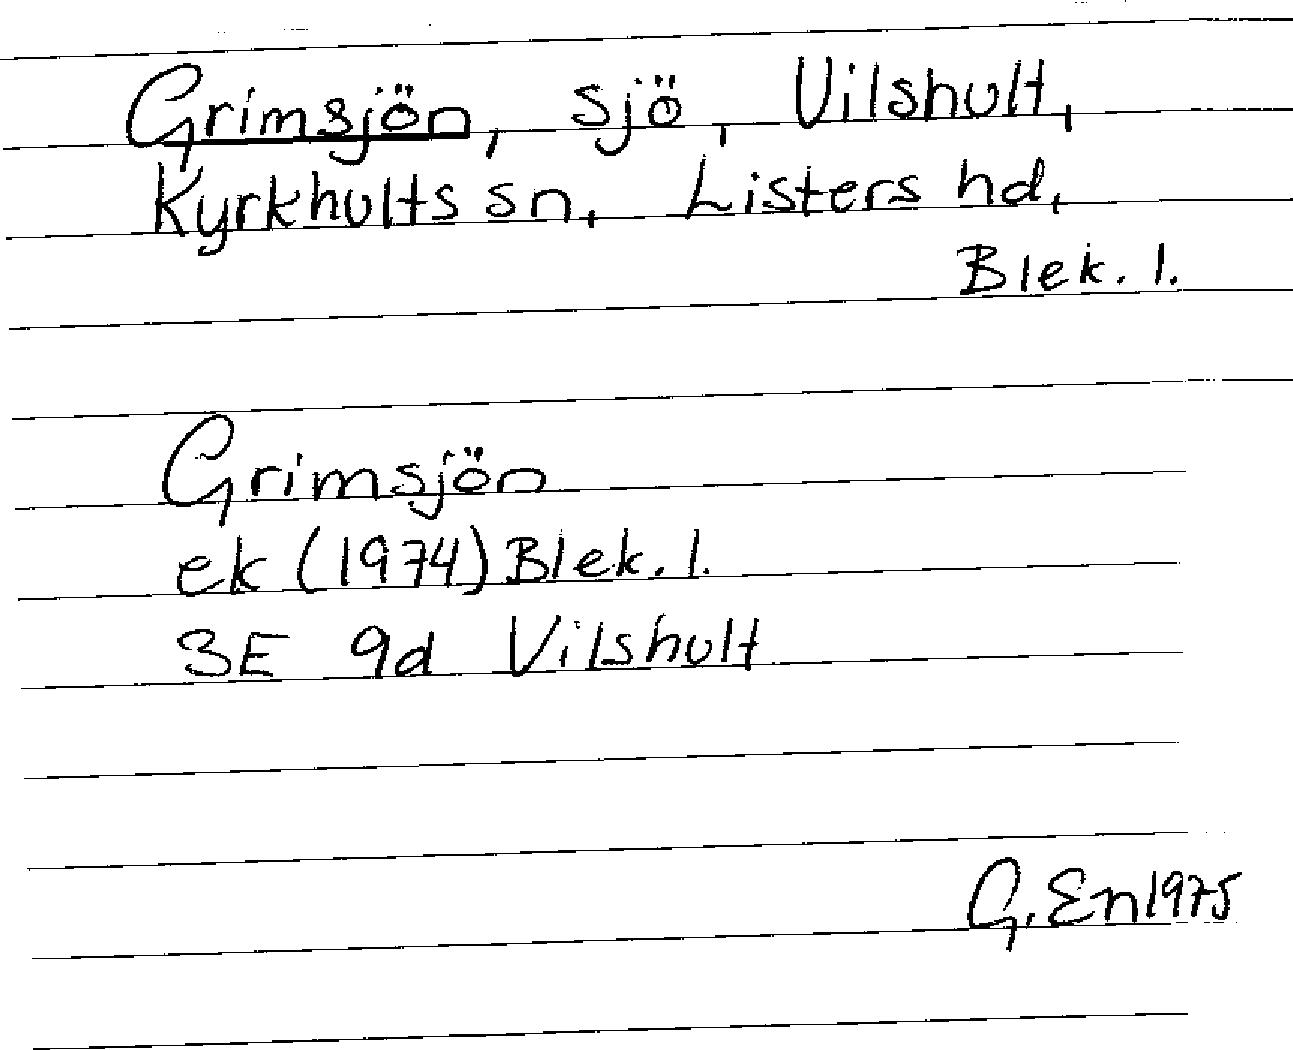 Grimsjön, sjö, Vilshult,
Kyrkhults sn, Listers hd,
Blek. l.
Grimsjön
ek (1974) Blek. l.
3E 9d Vilshult
G. En 1975